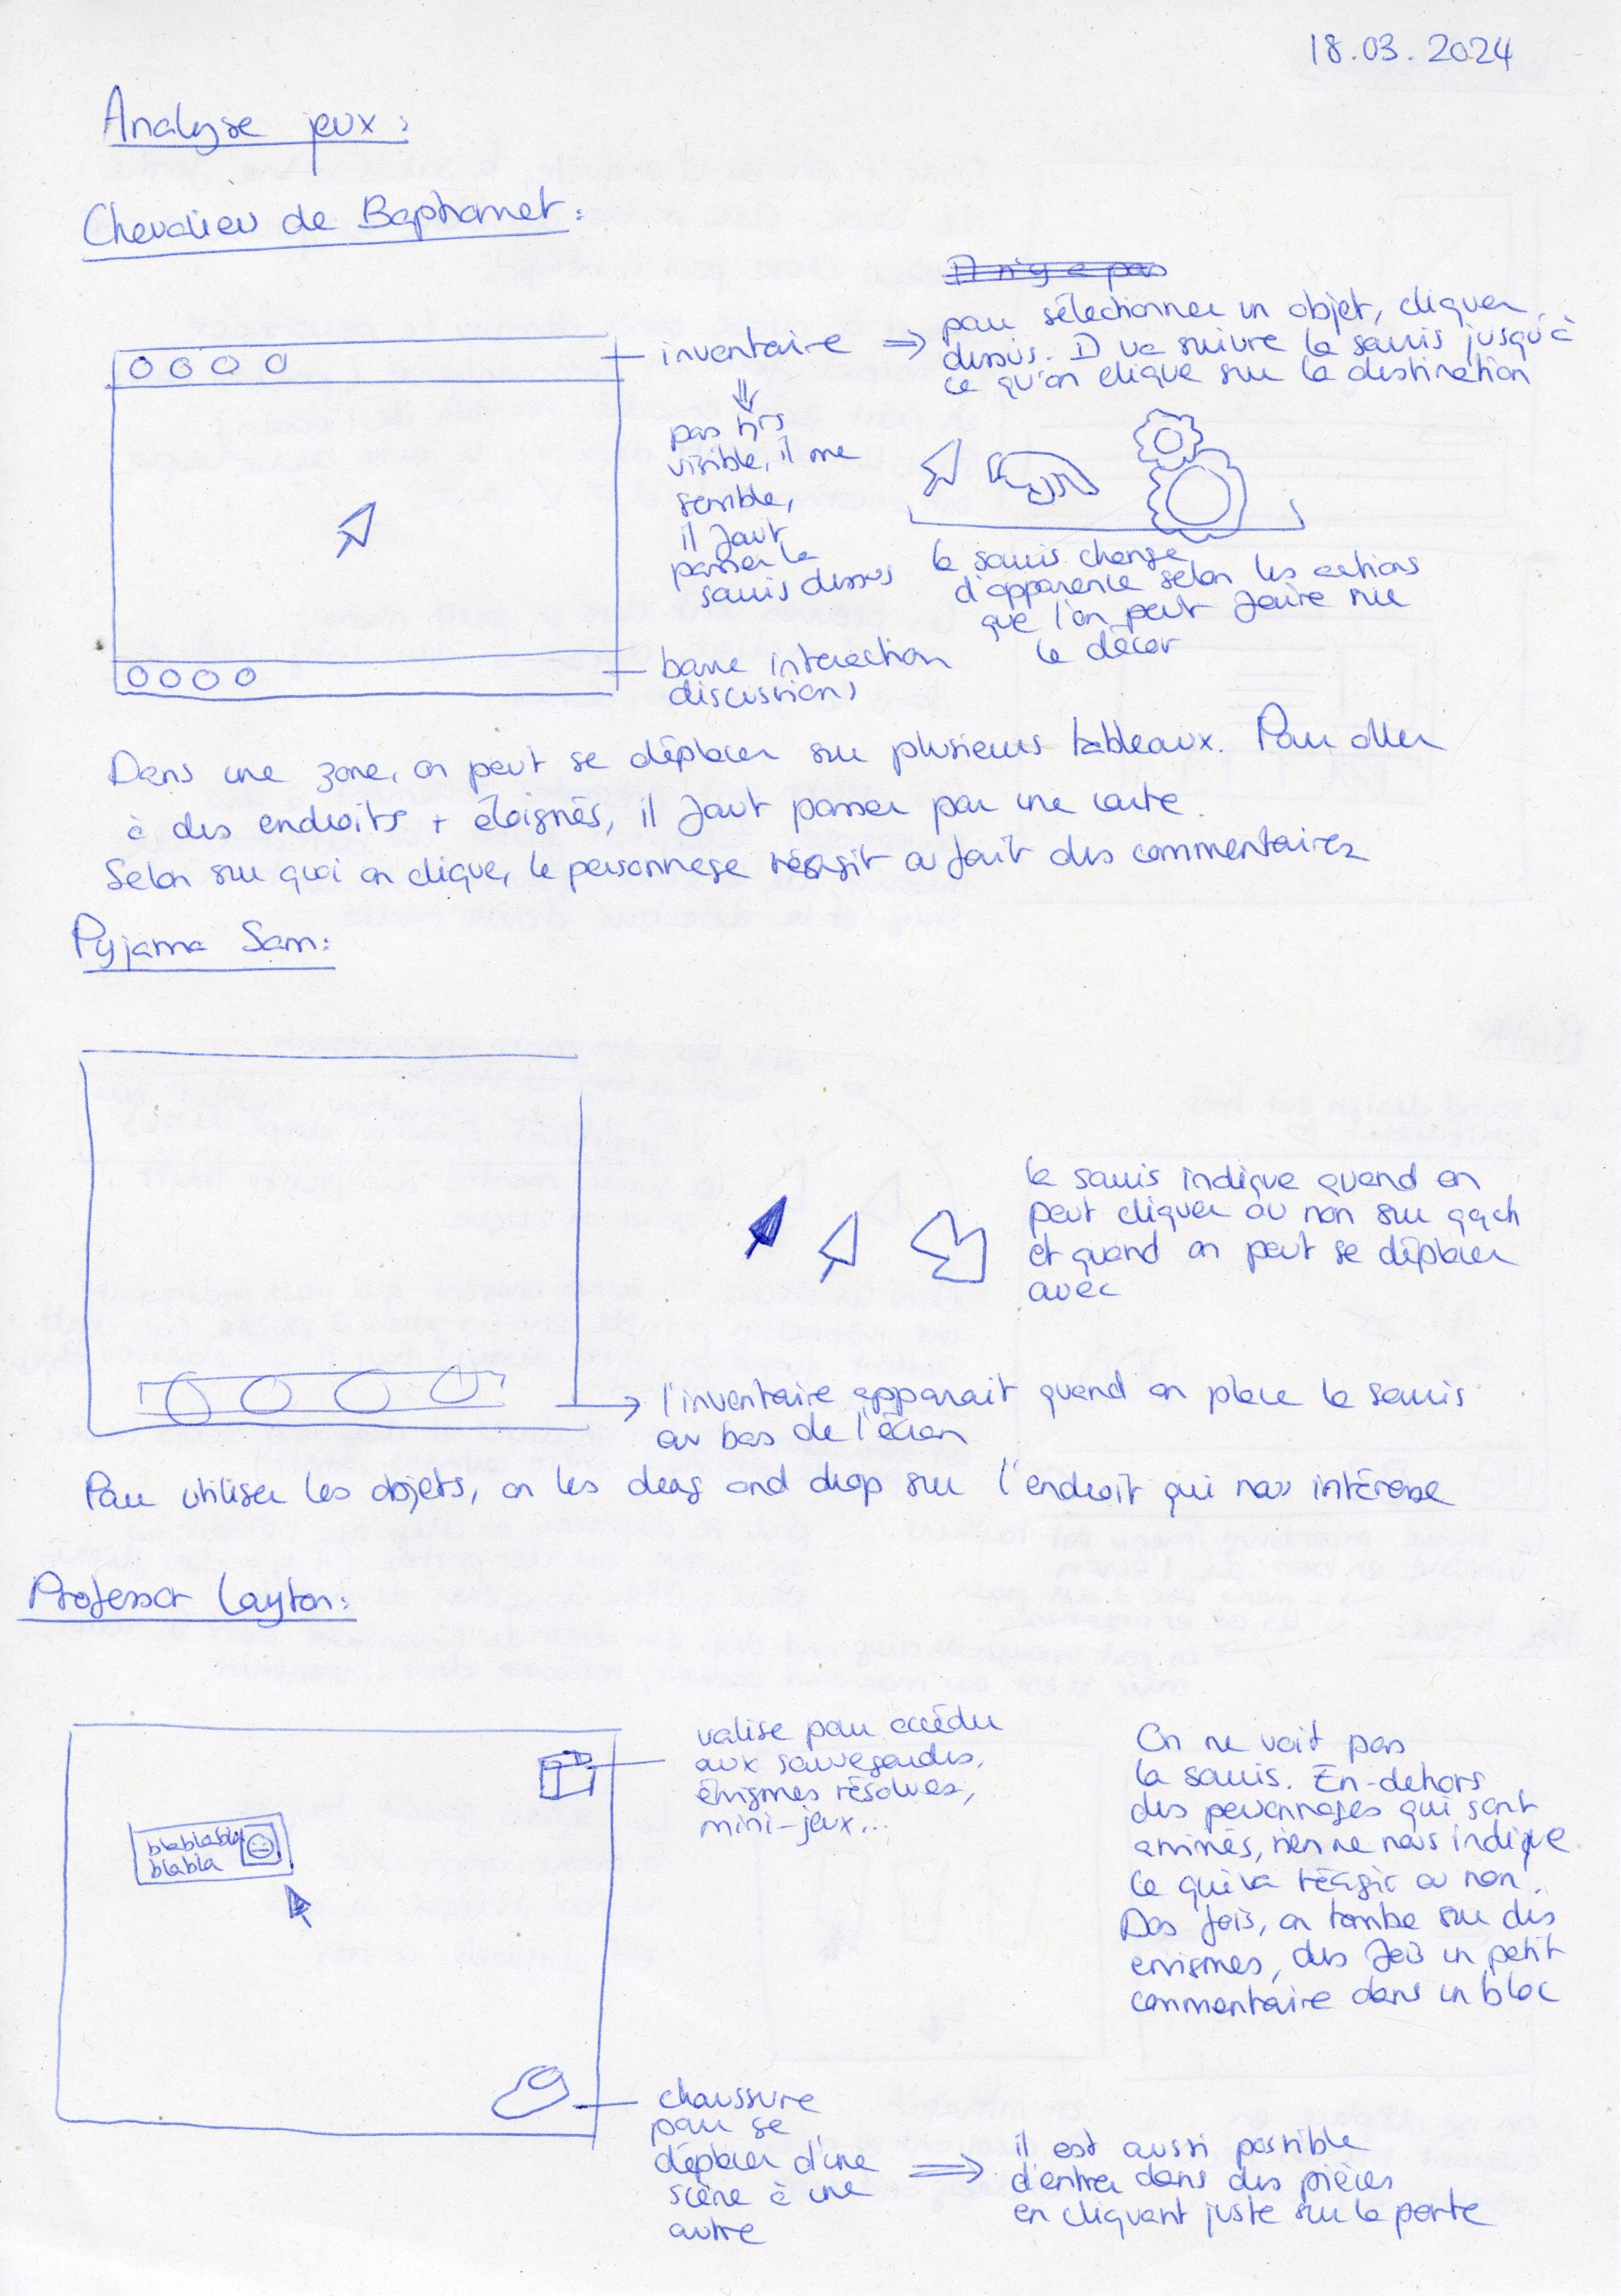 18.03.2024
Analyse jeux :
Chevalier de Baphomet :
Il n'y a pas
pour sélectionner un objet, cliquer
dessus. Il va suivre la souris jusqu'à
ce qu'on clique sur la destination
inventaire ⇒
pas très
visible, il me
semble,
il faut
passer la
souris dessus
la souris change
d'apparence selon les actions
que l'on peut faire sur
le décor
barre interaction
discussions
Dans une zone, on peut se déplacer sur plusieurs tableaux. Pour aller
à des endroits + éloignés, il faut passer par une carte.
Selon sur quoi on clique, le personnage réagit ou fait des commentaires
Pyjama Sam :
la souris indique quand on
peut cliquer ou non sur qqch
et quand on peut se déplacer
avec
l'inventaire apparait quand on place la souris
au bas de l'écran
Pour utiliser les objets, on les drag and drop sur l'endroit qui nous intéresse
Professor Layton :
valise pour accéder
aux sauvegardes,
énigmes résolues,
mini-jeux...
blablabla
blabla
On ne voit pas
la souris. En-dehors
des personnages qui sont
animés, rien ne nous indique
ce qui va réagir ou non.
Des fois, on tombe sur des
enigmes, des fois un petit
commentaire dans un bloc
chaussure
pour se
déplacer d'une
scène à une
autre
⇒ il est aussi possible
d'entrer dans des pièces
en cliquant juste sur la porte